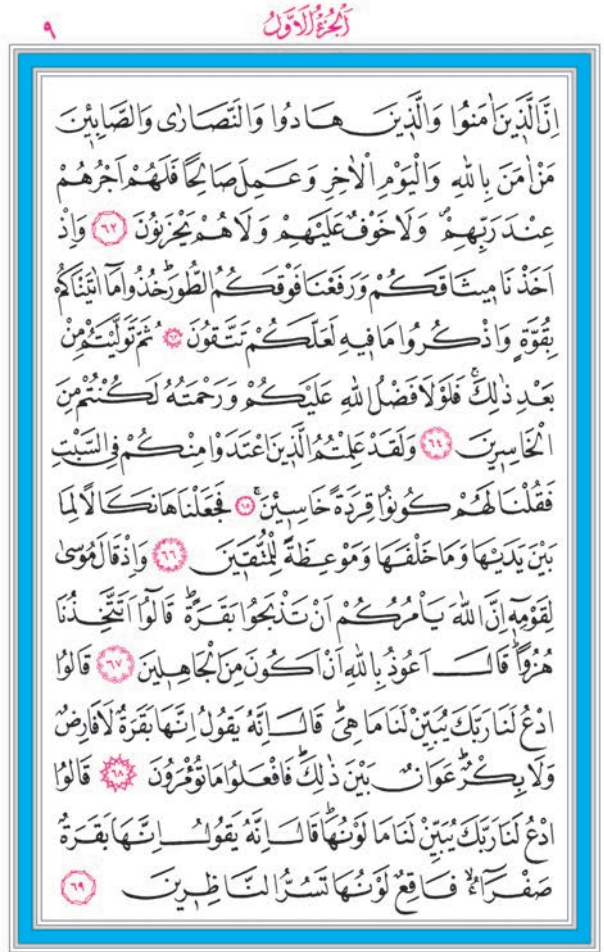 اَلْجُزْءُ الْاَوَّلُ
٩
اِنَّ الَّذٖينَ اٰمَنُوا وَالَّذٖينَ هَادُوا وَالنَّصَارٰى وَالصَّابِـٖٔينَ
مَنْ اٰمَنَ بِاللّٰهِ وَالْيَوْمِ الْاٰخِرِ وَعَمِلَ صَالِحًا فَلَهُمْ اَجْرُهُمْ
عِنْدَ رَبِّهِمْۚ وَلَا خَوْفٌ عَلَيْهِمْ وَلَا هُمْ يَحْزَنُونَ ﴿٦٢﴾ وَاِذْ
اَخَذْنَا مٖيثَاقَكُمْ وَرَفَعْنَا فَوْقَكُمُ الطُّورَؕ خُذُوا مَٓا اٰتَيْنَاكُمْ
بِقُوَّةٍ وَاذْكُرُوا مَا فٖيهِ لَعَلَّكُمْ تَتَّقُونَ ﴿٦٣﴾ ثُمَّ تَوَلَّيْتُمْ مِنْ
بَعْدِ ذٰلِكَۚ فَلَوْلَا فَضْلُ اللّٰهِ عَلَيْكُمْ وَرَحْمَتُهُ لَكُنْتُمْ مِنَ
الْخَاسِرٖينَ ﴿٦٤﴾ وَلَقَدْ عَلِمْتُمُ الَّذٖينَ اعْتَدَوْا مِنْكُمْ فِى السَّبْتِ
فَقُلْنَا لَهُمْ كُونُوا قِرَدَةً خَاسِـٖٔينَۚ ﴿٦٥﴾ فَجَعَلْنَاهَا نَكَالًا لِمَا
بَيْنَ يَدَيْهَا وَمَا خَلْفَهَا وَمَوْعِظَةً لِلْمُتَّقٖينَ ﴿٦٦﴾ وَاِذْ قَالَ مُوسٰى
لِقَوْمِهٖٓ اِنَّ اللّٰهَ يَاْمُرُكُمْ اَنْ تَذْبَحُوا بَقَرَةًؕ قَالُٓوا اَتَتَّخِذُنَا
هُزُوًاؕ قَالَ اَعُوذُ بِاللّٰهِ اَنْ اَكُونَ مِنَ الْجَاهِلٖينَ ﴿٦٧﴾ قَالُوا
ادْعُ لَنَا رَبَّكَ يُبَيِّنْ لَنَا مَا هِىَؕ قَالَ اِنَّهُ يَقُولُ اِنَّهَا بَقَرَةٌ لَا فَارِضٌ
وَلَا بِكْرٌؕ عَوَانٌ بَيْنَ ذٰلِكَؕ فَافْعَلُوا مَا تُؤْمَرُونَ ﴿٦٨﴾ قَالُوا
ادْعُ لَنَا رَبَّكَ يُبَيِّنْ لَنَا مَا لَوْنُهَاؕ قَالَ اِنَّهُ يَقُولُ اِنَّهَا بَقَرَةٌ
صَفْرَٓاءُۙ فَاقِعٌ لَوْنُهَا تَسُرُّ النَّاظِرٖينَ ﴿٦٩﴾